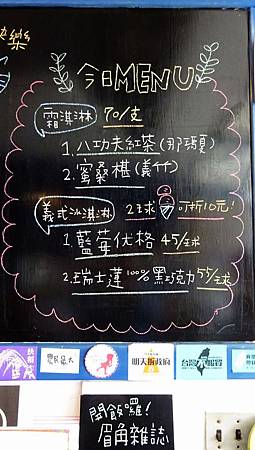 快樂
今日MENU
霜淇淋 70/支
1.八功夫紅茶(那瑪)
2.蜜桑椹(義竹)
義式冰淇淋 2球 可折10元!
1.藍莓优格 45/球
2.瑞士蓮100%黑巧克力 55/球
農民最大
明天拆政府
開飯囉!
眉角雜誌